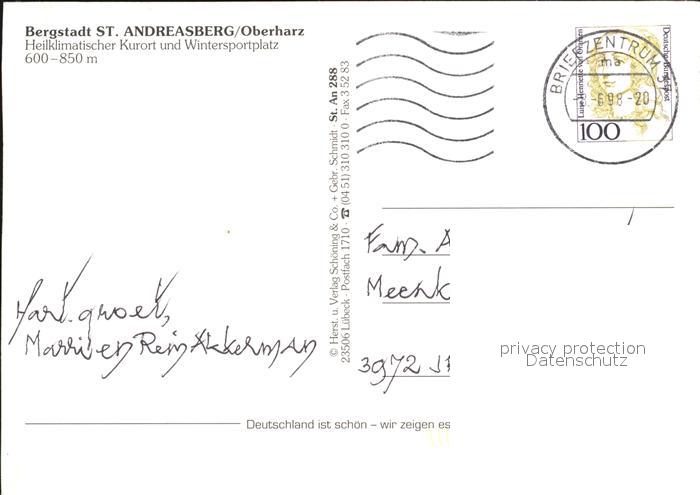 Bergstadt ST. ANDREASBERG/Oberharz
Heilklimatischer Kurort und Wintersportplatz
600–850 m
Hart. groet,
Marri en Rein Akkerman
© Herst. u. Verlag Schöning & Co. + Gebr. Schmidt · St. An 288
23506 Lübeck · Postfach 1710 · ☎ (04 51) 310 310 0 · Fax 3 52 83
BRIEFZENTRUM
ma
6.98-20
Luise Henriette von Oranien
Deutsche Bundespost
100
Fam. A
Meenk
3972
privacy protection
Datenschutz
Deutschland ist schön – wir zeigen es